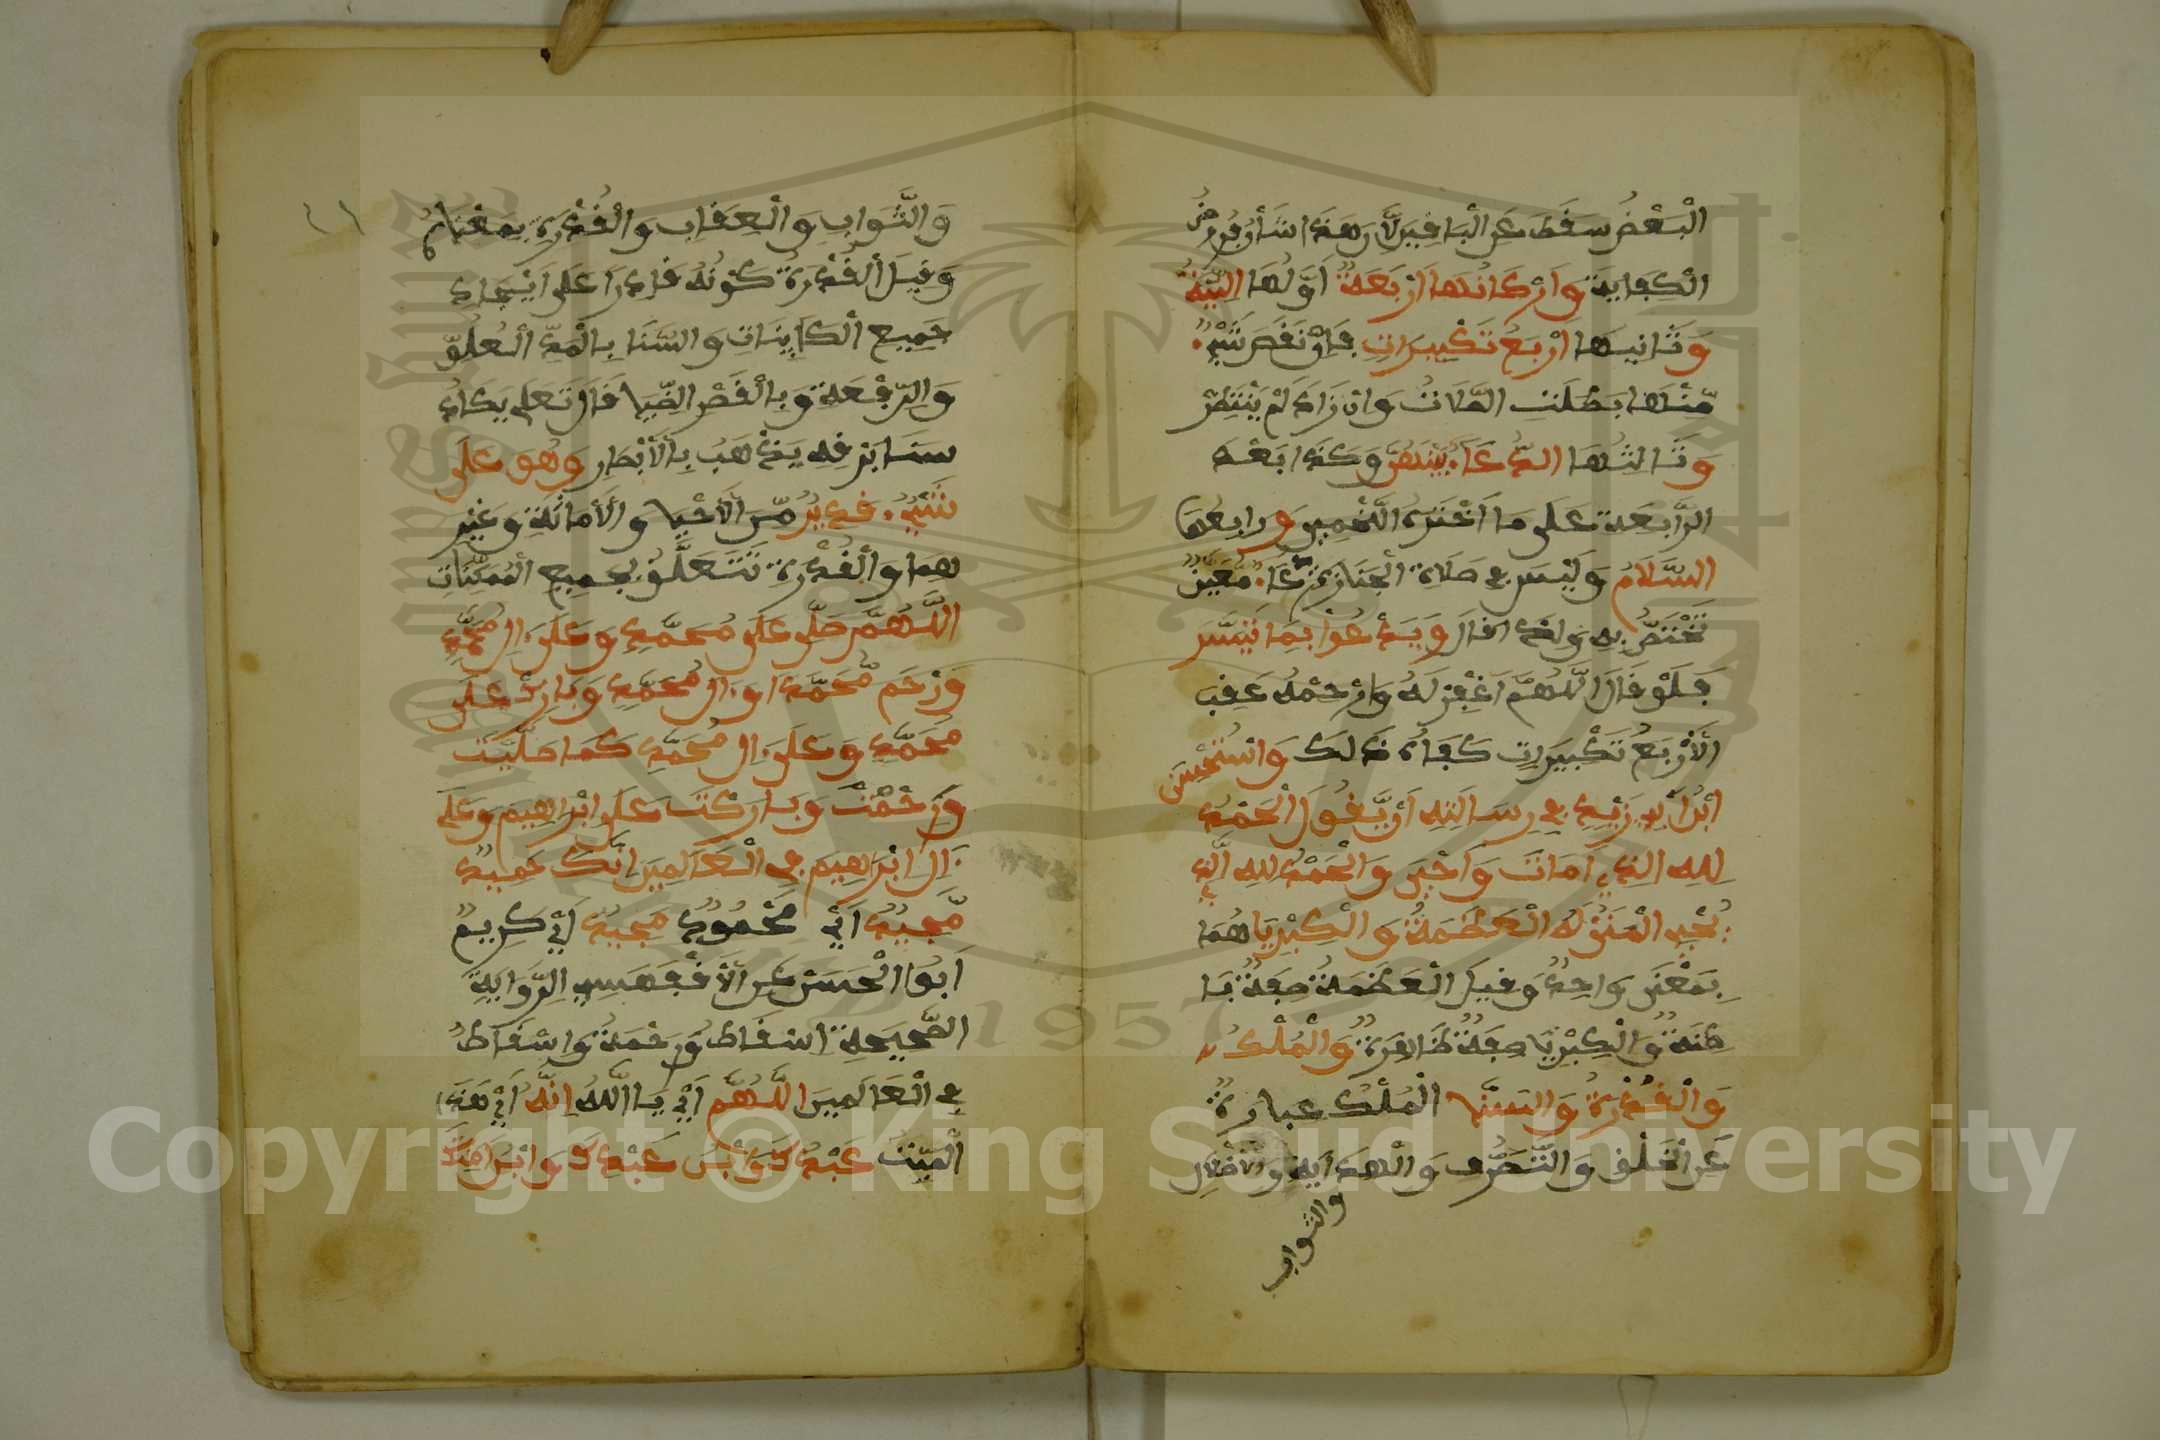 الْبَعْضُ سَقَطَ عَنِ الْبَاقِينَ لِأَنَّ هَذَا شَأْنُ فُرُوضِ
الْكِفَايَةِ وَأَرْكَانُهَا أَرْبَعَةٌ أَوَّلُهَا النِّيَّةُ
وَثَانِيهَا أَرْبَعُ تَكْبِيرَاتٍ فَإِنْ نَقَصَ شَيْءٌ
مِّنْهَا بَطَلَتِ الصَّلَاتُ وَإِنْ زَادَ لَمْ يُنْتَظَرْ
وَثَالِثُهَا الدُّعَاءُ بَيْنَهُنَّ وَكَذَا بَعْدَ
الرَّابِعَةِ عَلَى مَا اخْتَرَهُ اللَّخْمِي وَرَابِعُهَا
السَّلَامُ وَلَيْسَ فِي صَلَاةِ الْجَنَازَةِ دُعَاءٌ مُّعَيَّنٌ
تَخْتَصُّ بِهِ وَلِذَا قَالَ وَيَدْعُوا بِمَا تَيَسَّرَ
فَلَوْ قَالَ اللَّهُمَّ اغْفِرْ لَهُ وَارْحَمْهُ عَقِبَ
الْأَرْبَعُ تَكْبِيرَاتٍ كَفَاهُ ذَلِكَ وَاسْتَحْسَنَ
ابْنُ أَبِي زَيْدٍ فِي رِسَالَتِهِ أَنْ يَّقُولَ الْحَمْدُ
لِلهِ الذِي أَمَاتَ وَأَحْيَى وَالْحَمْدُ لِلهِ الَّذِي
يُحْيِ الْمَوْتَى لَهُ الْعَظَمَةُ وَالْكِبْرِيَا هُمَا
بِمَعْنًى وَاحِدٌ وَقِيلَ الْعَظَمَةُ صِفَةٌ بَا
طِنَةٌ وَالْكِبْرِيَا صِفَةٌ ظَاهِرَةٌ وَالْمُلْكُ
وَالْقُدْرَةُ وَالسَّنَا الْمُلْكُ عِبَارَةٌ
عَنِ الْخَلْقِ وَالتَّصَرُّفِ وَالْهِدَايَةِ وَالْإِضْلَالِ
والثواب
٤١
وَالثَّوَابِ وَالْعِقَابِ وَالْقُدْرَةِ بِمَعْنَاهُ
وَقِيلَ الْقُدْرَةُ كَوْنُهُ قَادِرًا عَلَى إِيجَادِ
جَمِيعِ الْكَايِنَاتِ وَالسَّنَا بِالْمَدِّ الْعُلُوُّ
وَالرِّفْعَةُ وَبِالْقَصْرِ الضِّيَا قَالَ تَعَلَى يَكَادُ
سَنَا بَرْقِهِ يَذْهَبُ بِالْأَبْصَارِ وَهُوَ عَلَى
شَيْءٍ قَدِيرٌ مِّنَ الْأَحْيَا وَالْأَمَاتَةِ وَغَيْرِ
هِمَا وَالْقُدْرَةُ تَتَعَلَّقُ بِجَمِيعِ الْمُمْكِنَاتِ
اللَّهُمَّ صَلِّ عَلَى مُحَمَّدٍ وَعَلَى ءَالِ مُحَمَّدٍ
وَرْحَم مُّحَمَّدًا وَءَالَ مُحَمَّدٍ وَبَارِكْ عَلَى
مُحَمَّدٍ وَعَلَى ءَالِ مُحَمَّدٍ كَمَا صَلَّيْتَ
وَرَحِمْتَ وَبَارَكْتَ عَلَى إِبْرَاهِيمَ وَعَلَى
ءَالِ إِبْرَاهِيمَ فِي الْعَالَمِينَ إِنَّكَ حَمِيدٌ
مَّجِيدٌ أَيْ مَحْمُودٌ مَجِيدٌ أَيْ كَرِيمٌ
أَبُو الْحَسَنْ عَنِ الْأَقْفَهَسِي الرِّوَايَةِ
الصَّحِيحَةِ إِسْقَاطُ وَرَحْمَةُ وَإِسْقَاطُ
فِي الْعَالَمِينَ اللَّهُمَّ أَيْ يَا اللَّهُ إِنَّهُ أَيْ هَذَا
الْمَيِّتُ عَبْدُكَ وَابْنُ عَبْدِكَ وَابْنُ أَمَتِكَ
Copyright © King Saud University
1957